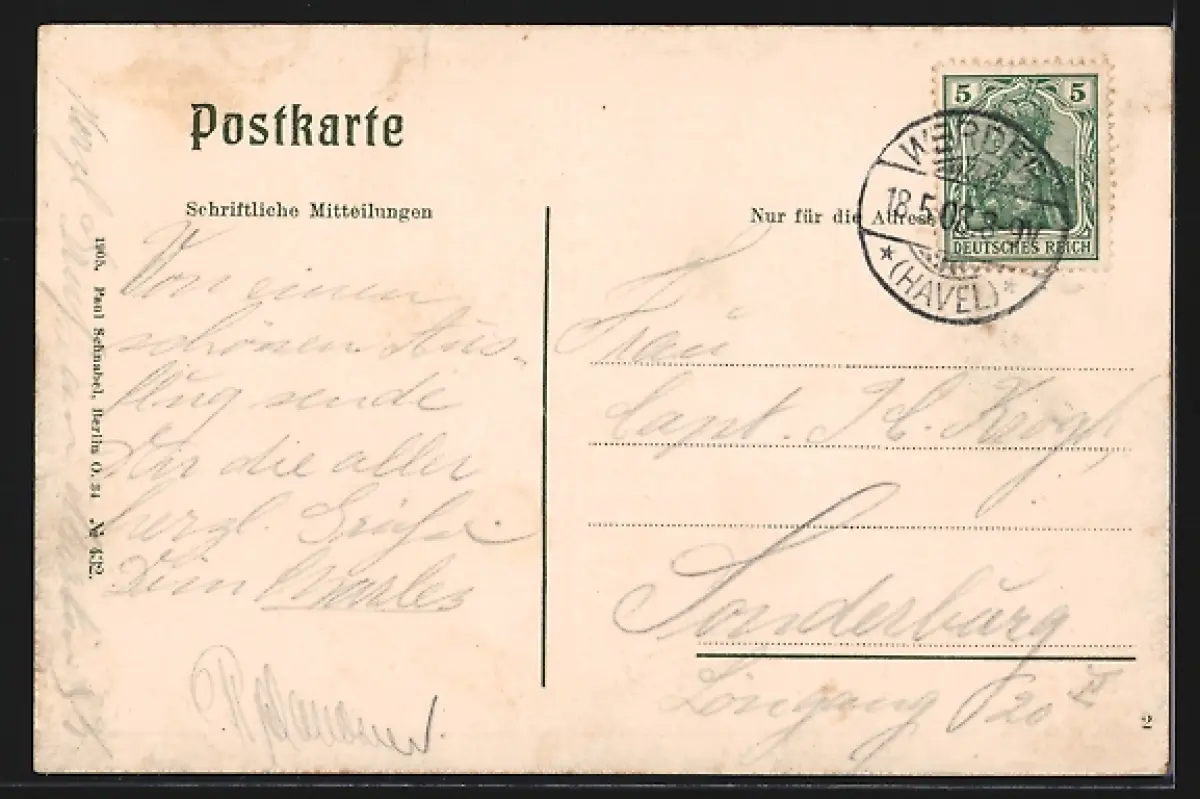 Postkarte
Schriftliche Mitteilungen
Nur für die Adresse
5 5
DEUTSCHES REICH
WERDER
18.5.08. 8-9V
(HAVEL)
Von einem
schönen Aus-
flug sende
Dir die aller
herzl. Grüße
Dein Charles
Frau
Capt. J. C. Krogh
Sonderburg
Löngang 20 II
1905. Paul Schnabel, Berlin O. 34 № 432.
2